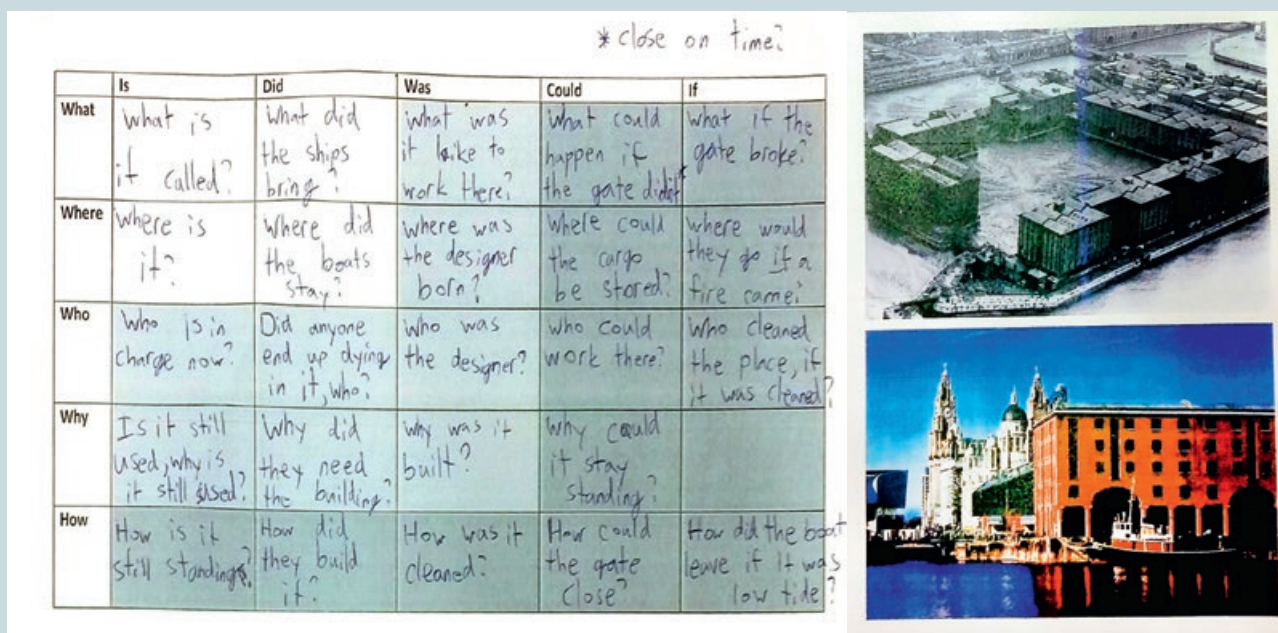 *close on time?
Is
Did
Was
Could
If
What
what is
it called?
what did
the ships
bring?
what was
it like to
work there?
What could
happen if
the gate didn't*
what if the
gate broke?
Where
where is
it?
where did
the boats
stay?
where was
the designer
born?
where could
the cargo
be stored?
where would
they go if a
fire came?
Who
Who is in
charge now?
Did anyone
end up dying
in it, who?
Who was
the designer?
who could
work there?
Who cleaned
the place, if
it was cleaned?
Why
Is it still
used, why is
it still used?
Why did
they need
the building?
why was it
built?
Why could
it stay
standing?
How
How is it
still standing?
How did
they build
it?
How was it
cleaned?
How could
the gate
close?
How did the boat
leave if it was
low tide?